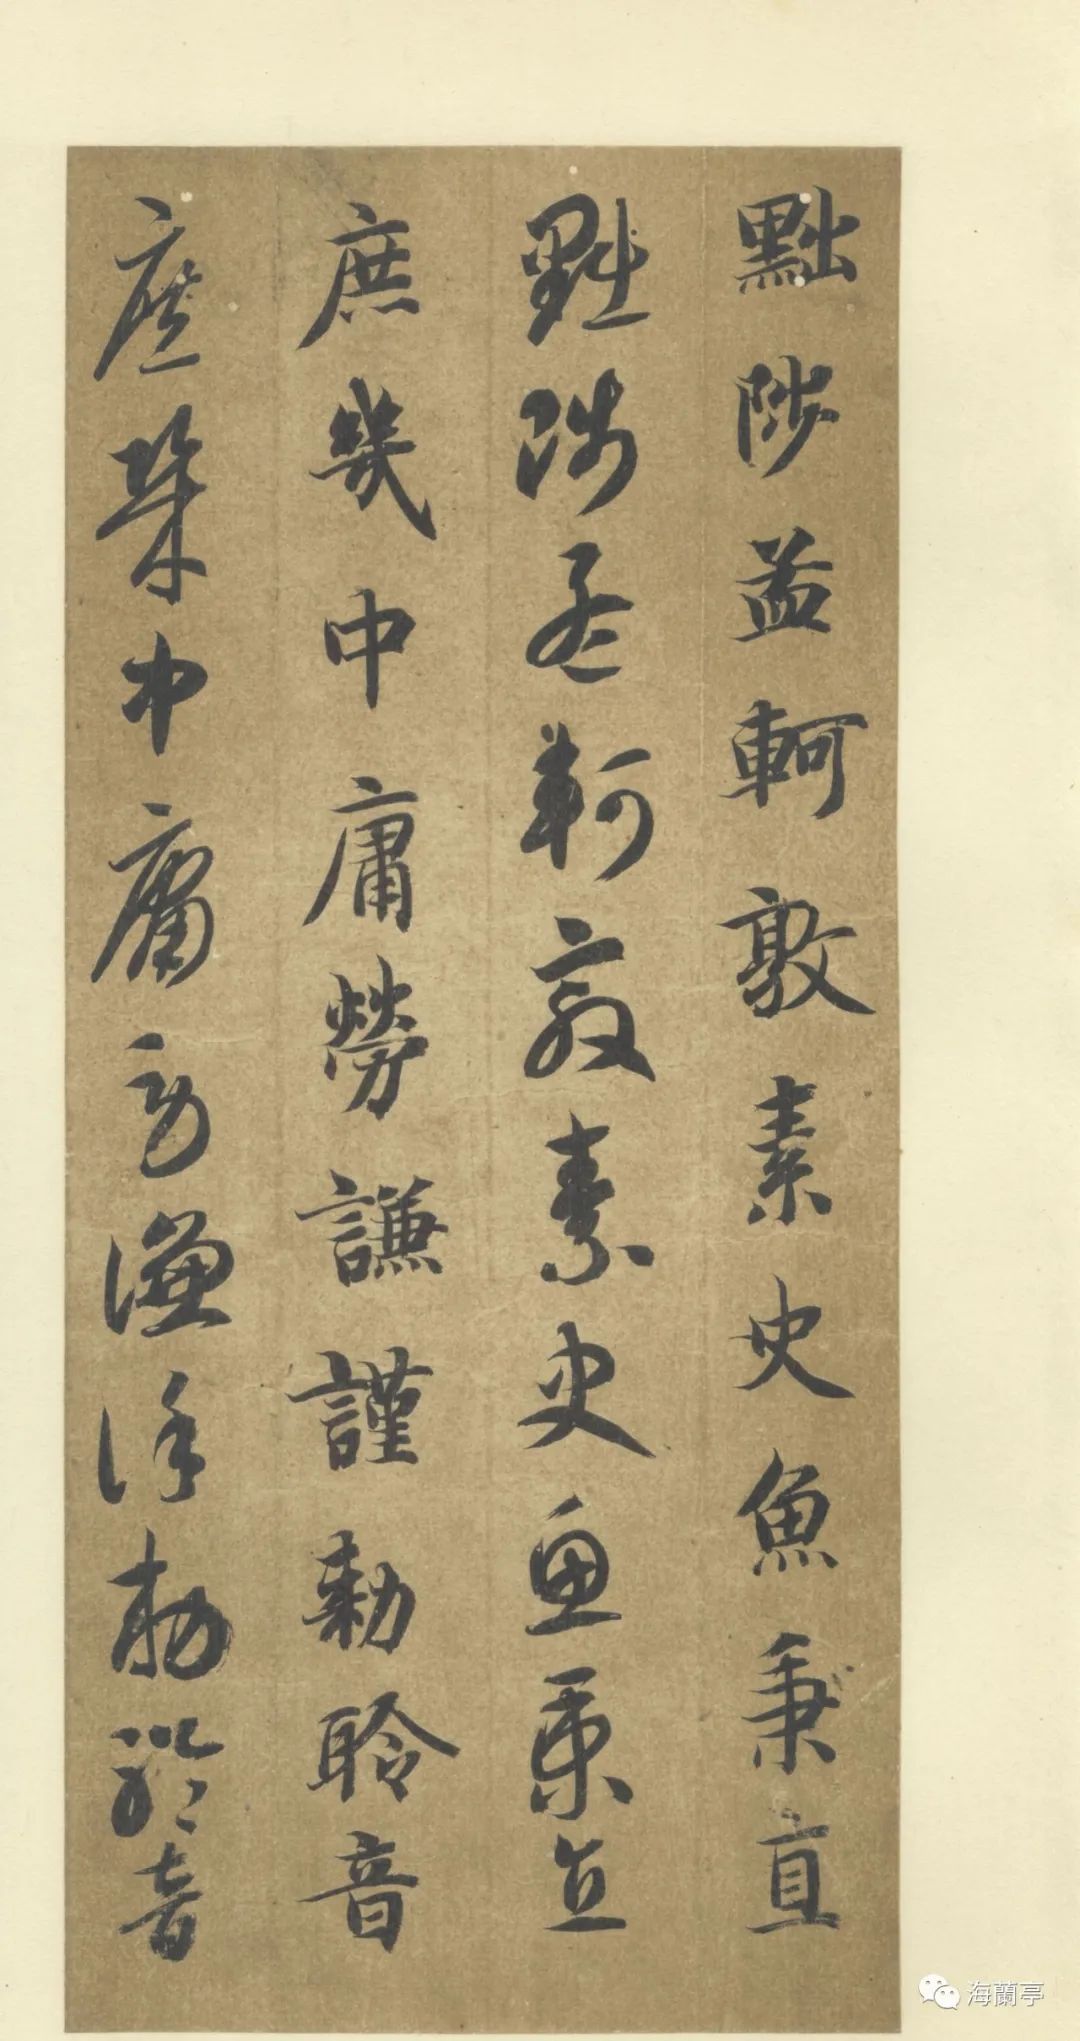 黜陟孟軻敦素史魚秉直
黜陟孟軻敦素史魚秉直
庶幾中庸勞謙謹勅聆音
庶幾中庸勞謙謹勅聆音
海蘭亭